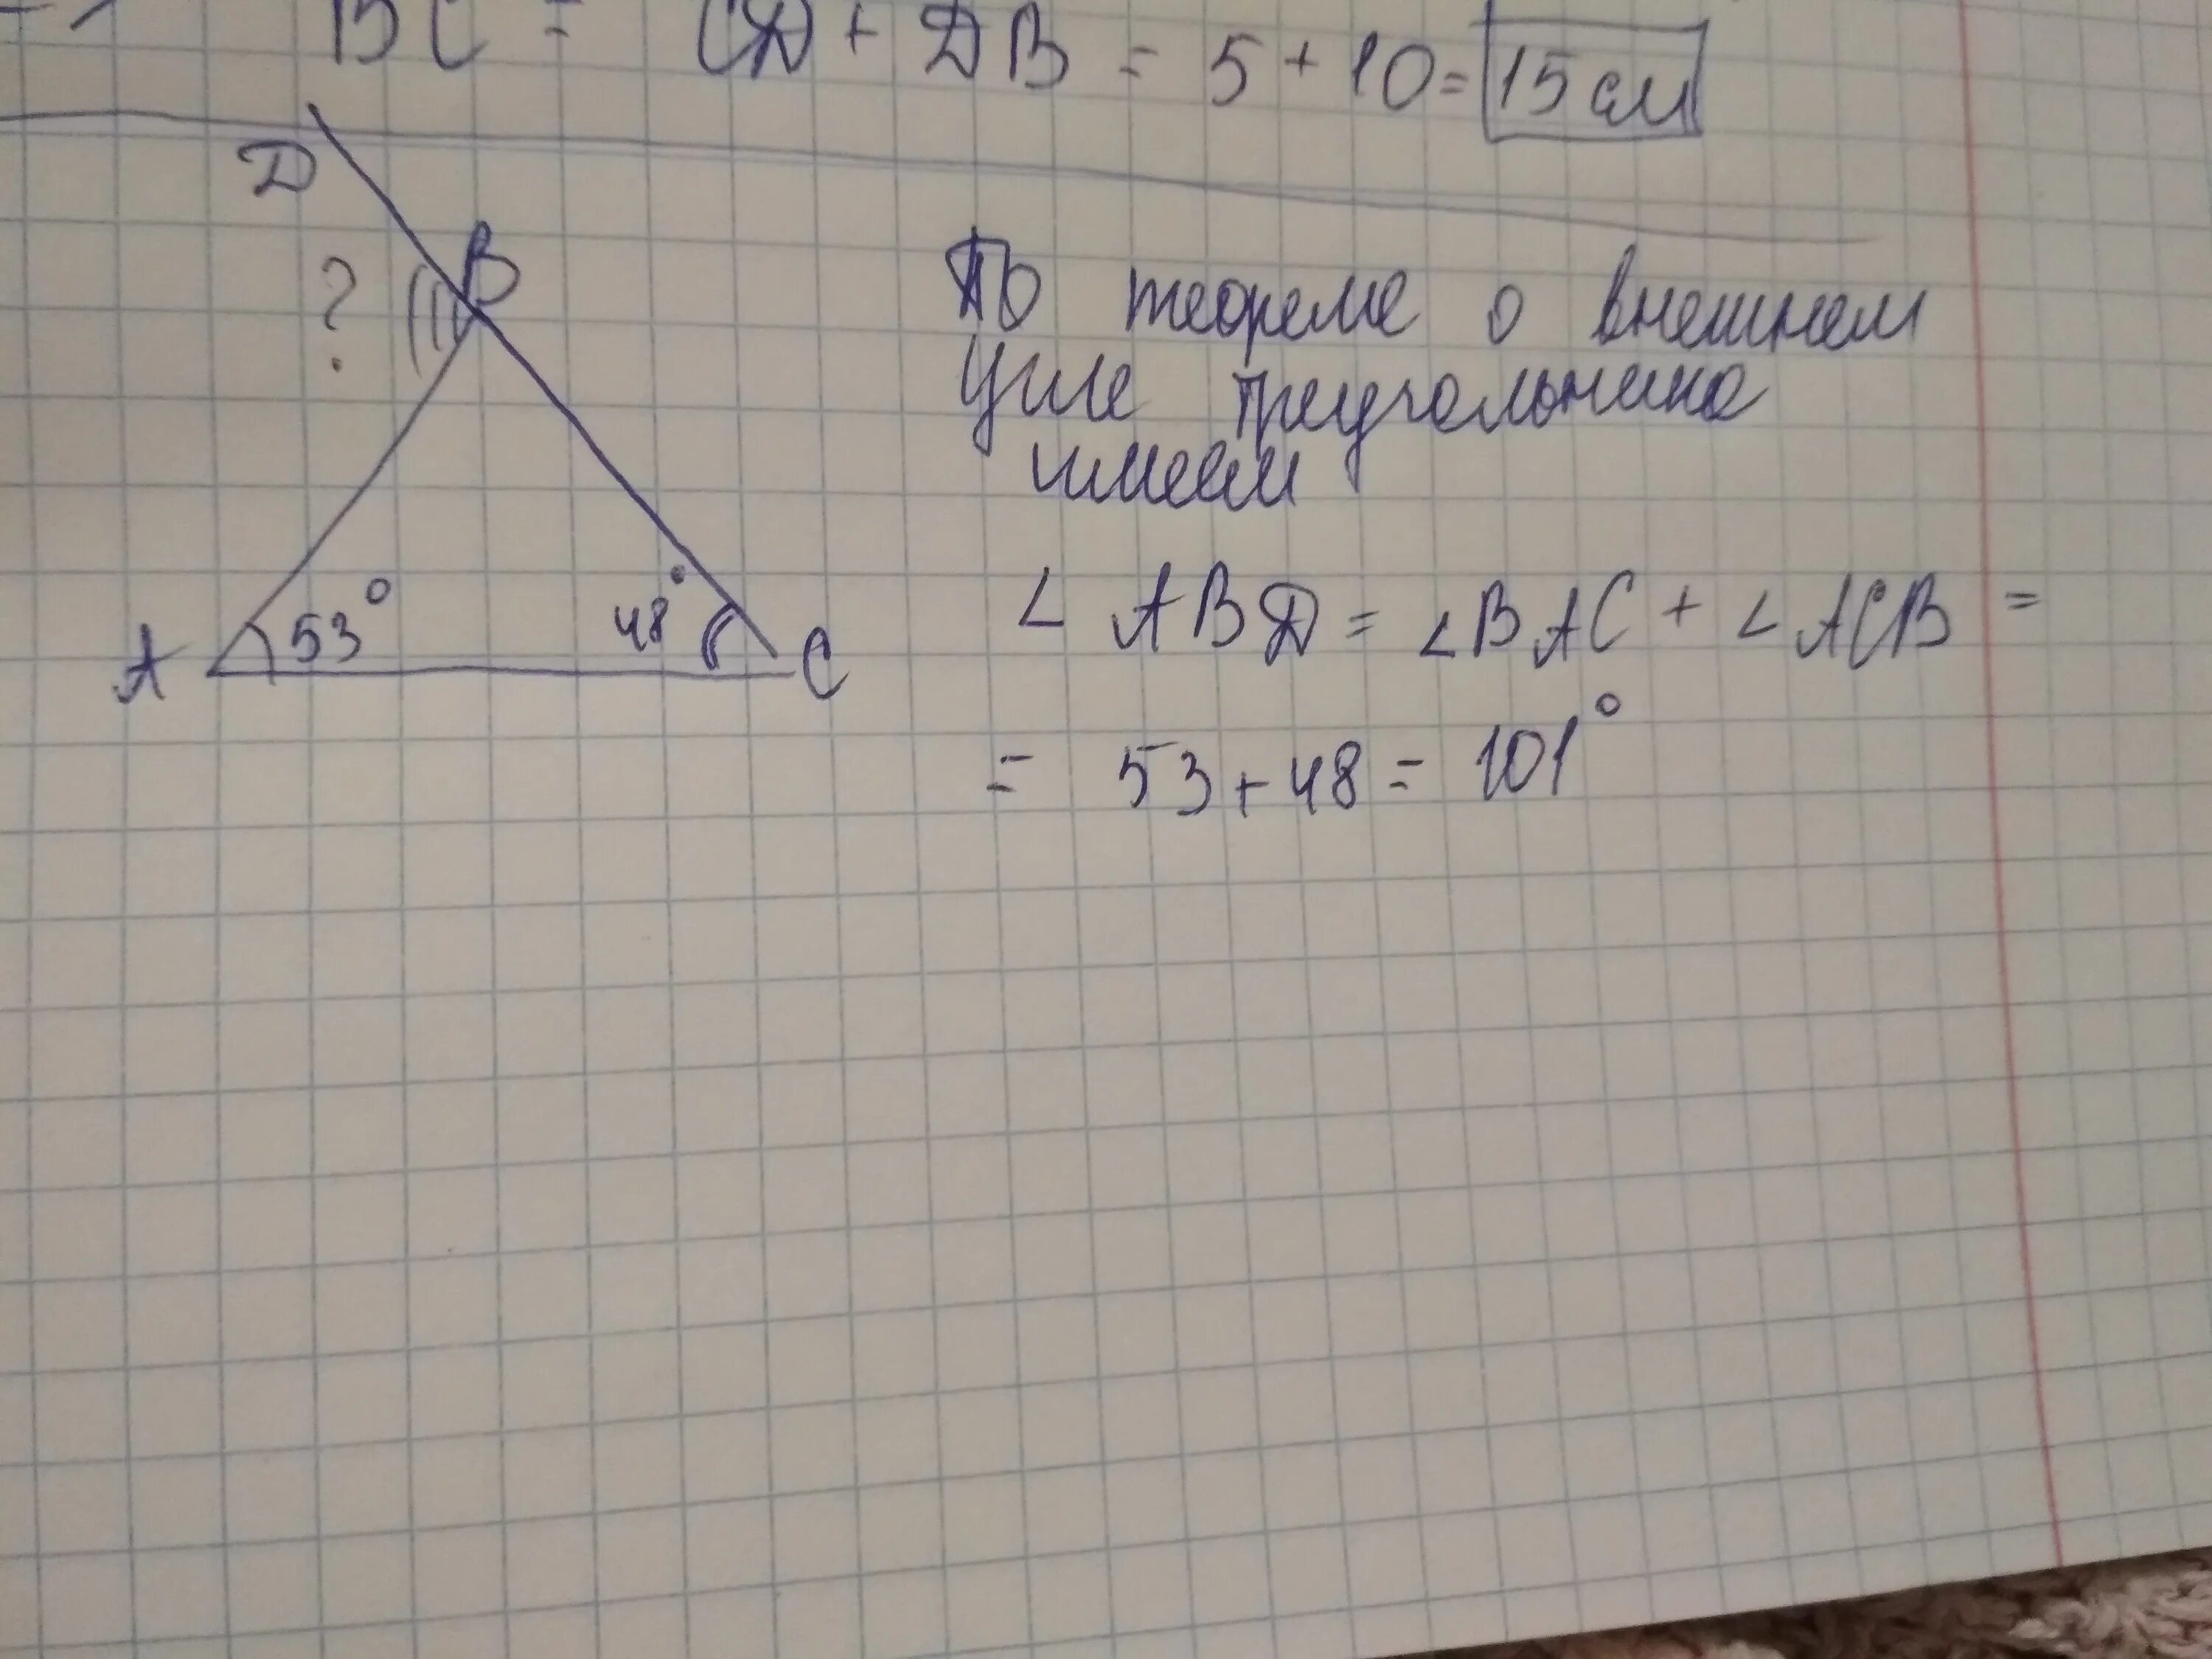 BC = CD + DB = 5 + 10 = 15 см
D
B
?
53°
48°
A
C
По теореме о внешнем
угле треугольника
имеем
∠ ABD = ∠BAC + ∠ACB =
= 53 + 48 = 101°